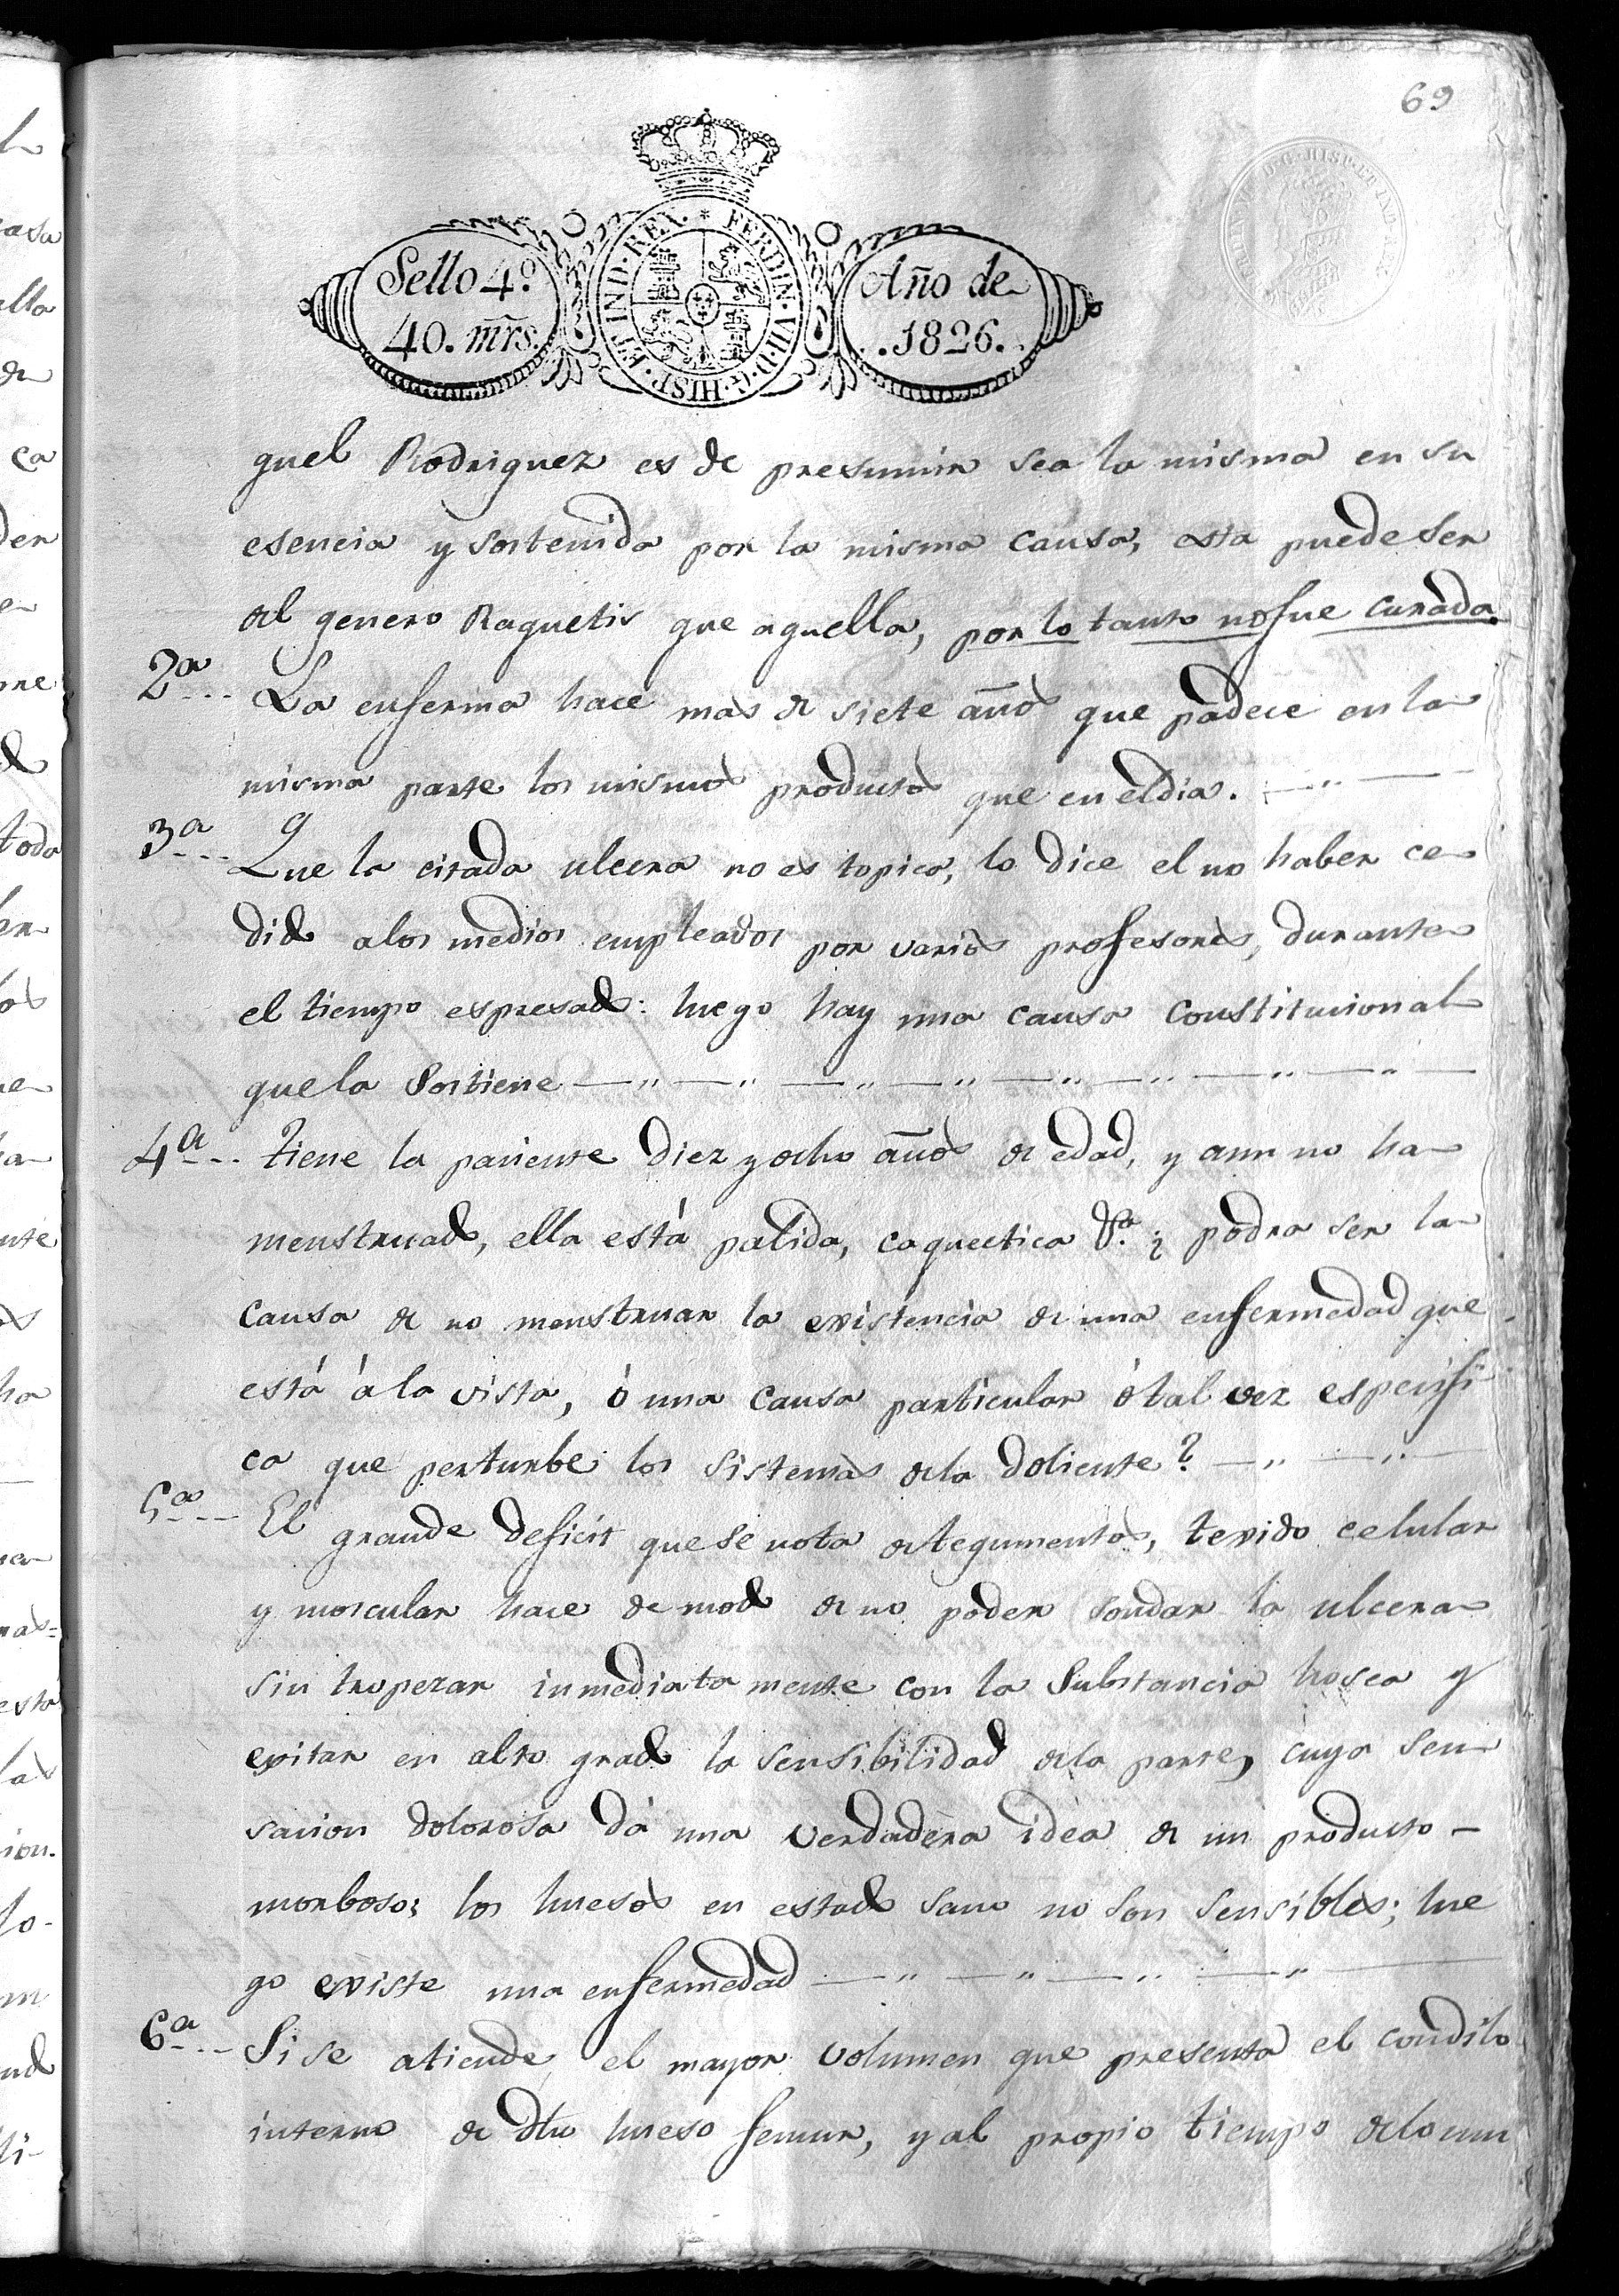 69
Sello 4.º
40. mrs.
HISP. ET IND. REX. * FERDIN. VII. D. G.
Año de
.1826.
guel Rodriguez es de presumir sea la misma en su
esencia y sostenida por la misma causa, esta puede ser
del genero Raquetis que aquella, por lo tanto no fue curada.
2ª... La enferma hace mas de siete años que padece en la
misma parte los mismos productos que en el dia.
3ª... Que la citada ulcera no es topica, lo dice el no haber ce
dido a los medios empleados por varios profesores, durante
el tiempo espresado: luego hay una causa Constitucional
que la Sostiene
4ª... tiene la paciente diez y ocho años de edad, y aun no ha
menstruado, ella está palida, caquectica &ª. ¿ podra ser la
causa de no menstruar la existencia de una enfermedad que
está á la vista, ó una causa particular ó tal vez especifi
ca que perturbe los sistemas de la doliente?
5ª... El grande deficit que se nota de tegumentos, texido celular
y moscular hace de modo de no poder sondar la ulcera
sin tropezar inmediatamente con la Substancia hosea y
exitar en alto grado la sensibilidad de la parte, cuya sen
sacion dolorosa dá una verdadera idea de un producto
morboso; los huesos en estado sano no son sensibles; lue
go existe una enfermedad
6ª... Si se atiende, el mayor volumen que presenta el condilo
interno de dho hueso femur, y al propio tiempo de lo cun